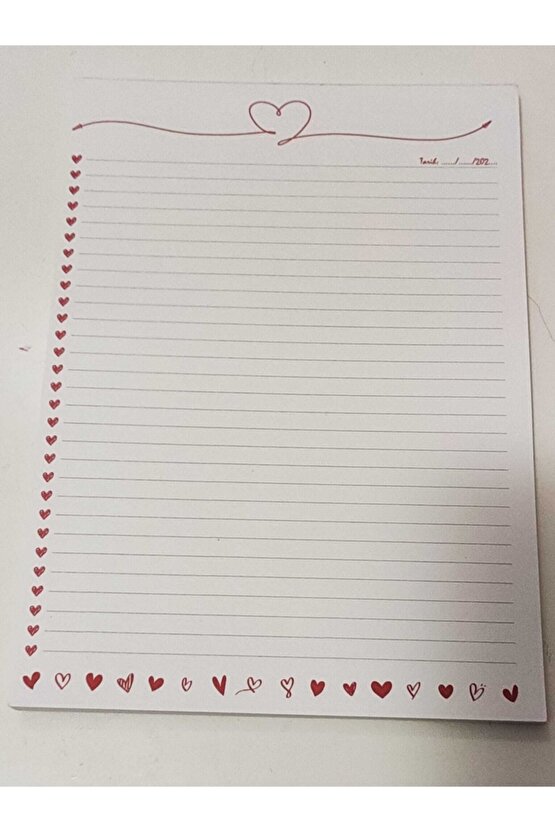 Tarih: ...../...../202....